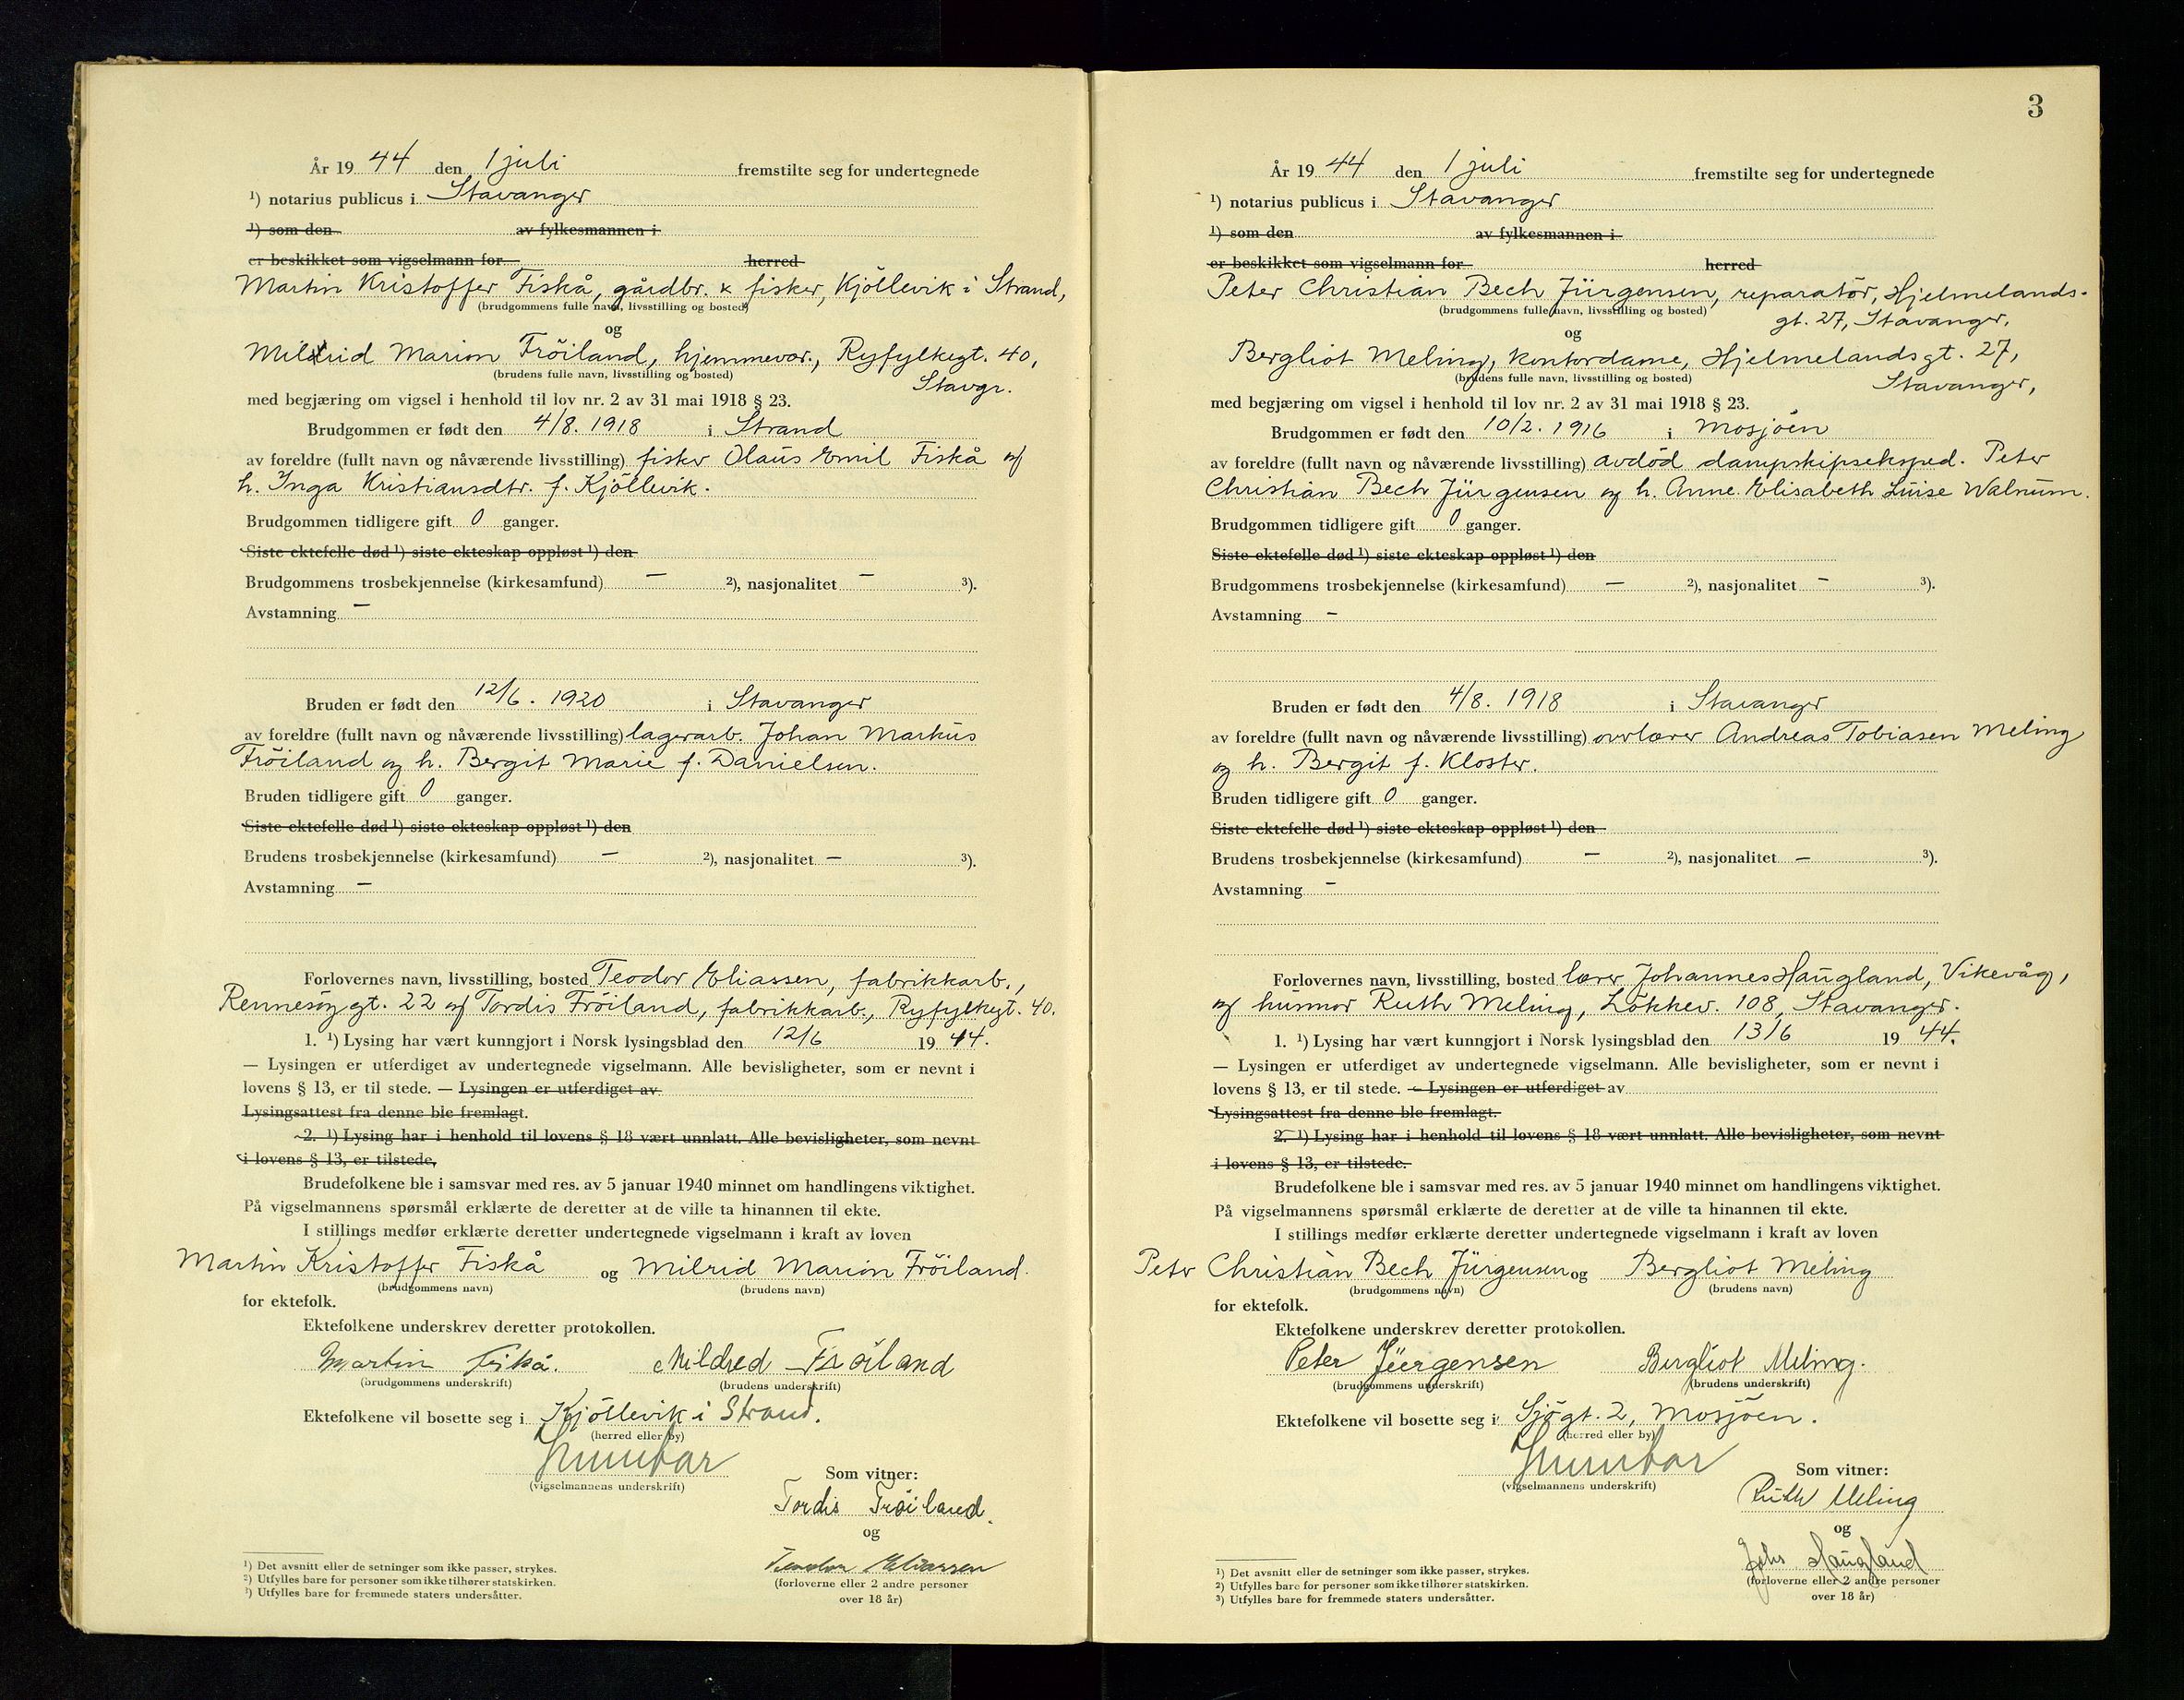 År 19 44 den 1 juli fremstilte seg for undertegnede
¹) notarius publicus i Stavanger
¹) som den av fylkesmannen i
er beskikket som vigselmann for herred
Martin Kristoffer Fiskå, gårdbr. & fisker, Kjöllevik i Strand,
(brudgommens fulle navn, livsstilling og bosted)
og
Milrid Marion Fröiland, hjemmevær., Ryfylkegt. 40,
(brudens fulle navn, livsstilling og bosted)
Stavgr.
med begjæring om vigsel i henhold til lov nr. 2 av 31 mai 1918 § 23.
Brudgommen er født den 4/8. 1918 i Strand
av foreldre (fullt navn og nåværende livsstilling) fisker Olaus Emil Fiskå og
h. Inga Kristiansdtr. f. Kjöllevik.
Brudgommen tidligere gift 0 ganger.
Siste ektefelle død ¹) siste ekteskap oppløst ¹) den
Brudgommens trosbekjennelse (kirkesamfund) — ²), nasjonalitet — ³).
Avstamning —
Bruden er født den 12/6. 1920 i Stavanger
av foreldre (fullt navn og nåværende livsstilling) lagerarb. Johan Markus
Fröiland og h. Bergit Marie f. Danielsen.
Bruden tidligere gift 0 ganger.
Siste ektefelle død ¹) siste ekteskap oppløst ¹) den
Brudens trosbekjennelse (kirkesamfund) — ²), nasjonalitet — ³).
Avstamning —
Forlovernes navn, livsstilling, bosted Teodor Eliassen, fabrikkarb.,
Rennesöygt. 22 og Tordis Fröiland, fabrikkarb., Ryfylkegt. 40.
1. ¹) Lysing har vært kunngjort i Norsk lysingsblad den 12/6 19 44.
— Lysingen er utferdiget av undertegnede vigselmann. Alle bevisligheter, som er nevnt i
lovens § 13, er til stede. — Lysingen er utferdiget av
Lysingsattest fra denne ble fremlagt.
2. ¹) Lysing har i henhold til lovens § 18 vært unnlatt. Alle bevisligheter, som nevnt
i lovens § 13, er tilstede,
Brudefolkene ble i samsvar med res. av 5 januar 1940 minnet om handlingens viktighet.
På vigselmannens spørsmål erklærte de deretter at de ville ta hinannen til ekte.
I stillings medfør erklærte deretter undertegnede vigselmann i kraft av loven
Martin Kristoffer Fiskå og Milrid Marion Fröiland.
(brudgommens navn) (brudens navn)
for ektefolk.
Ektefolkene underskrev deretter protokollen.
Martin Fiskå. Mildred Fröiland
(brudgommens underskrift) (brudens underskrift)
Ektefolkene vil bosette seg i Kjöllevik i Strand.
(herred eller by)
(vigselmannens underskrift)
Som vitner:
Tordis Fröiland.
og
Teodor Eliassen
(forloverne eller 2 andre personer
over 18 år)
¹) Det avsnitt eller de setninger som ikke passer, strykes.
²) Utfylles bare for personer som ikke tilhører statskirken.
³) Utfylles bare for fremmede staters undersåtter.
3
År 19 44 den 1 juli fremstilte seg for undertegnede
¹) notarius publicus i Stavanger
¹) som den av fylkesmannen i
er beskikket som vigselmann for herred
Peter Christian Bech Jürgensen, reparatör, Hjelmelands-
(brudgommens fulle navn, livsstilling og bosted)
gt. 27, Stavanger,
og
Bergliot Meling, kontordame, Hjelmelandsgt. 27,
(brudens fulle navn, livsstilling og bosted)
Stavanger,
med begjæring om vigsel i henhold til lov nr. 2 av 31 mai 1918 § 23.
Brudgommen er født den 10/2. 1916 i Mosjöen
av foreldre (fullt navn og nåværende livsstilling) avdöd dampskipseksped. Peter
Christian Bech Jürgensen og h. Anne Elisabeth Luise Walnum.
Brudgommen tidligere gift 0 ganger.
Siste ektefelle død ¹) siste ekteskap oppløst ¹) den
Brudgommens trosbekjennelse (kirkesamfund) — ²), nasjonalitet — ³).
Avstamning —
Bruden er født den 4/8. 1918 i Stavanger
av foreldre (fullt navn og nåværende livsstilling) overlærer Andreas Tobiasen Meling
og h. Bergit f. Kloster.
Bruden tidligere gift 0 ganger.
Siste ektefelle død ¹) siste ekteskap oppløst ¹) den
Brudens trosbekjennelse (kirkesamfund) — ²), nasjonalitet — ³).
Avstamning —
Forlovernes navn, livsstilling, bosted lærer Johannes Haugland, Vikevåg,
og husmor Ruth Meling, Lökkev. 108, Stavanger.
1. ¹) Lysing har vært kunngjort i Norsk lysingsblad den 13/6 19 44.
— Lysingen er utferdiget av undertegnede vigselmann. Alle bevisligheter, som er nevnt i
lovens § 13, er til stede. — Lysingen er utferdiget av
Lysingsattest fra denne ble fremlagt.
2. ¹) Lysing har i henhold til lovens § 18 vært unnlatt. Alle bevisligheter, som nevnt
i lovens § 13, er tilstede.
Brudefolkene ble i samsvar med res. av 5 januar 1940 minnet om handlingens viktighet.
På vigselmannens spørsmål erklærte de deretter at de ville ta hinannen til ekte.
I stillings medfør erklærte deretter undertegnede vigselmann i kraft av loven
Peter Christian Bech Jürgensen og Bergliot Meling
(brudgommens navn) (brudens navn)
for ektefolk.
Ektefolkene underskrev deretter protokollen.
Peter Jürgensen Bergliot Meling.
(brudgommens underskrift) (brudens underskrift)
Ektefolkene vil bosette seg i Sjögt. 2, Mosjöen.
(herred eller by)
(vigselmannens underskrift)
Som vitner:
Ruth Meling
og
Johs Haugland
(forloverne eller 2 andre personer
over 18 år)
¹) Det avsnitt eller de setninger som ikke passer, strykes.
²) Utfylles bare for personer som ikke tilhører statskirken.
³) Utfylles bare for fremmede staters undersåtter.